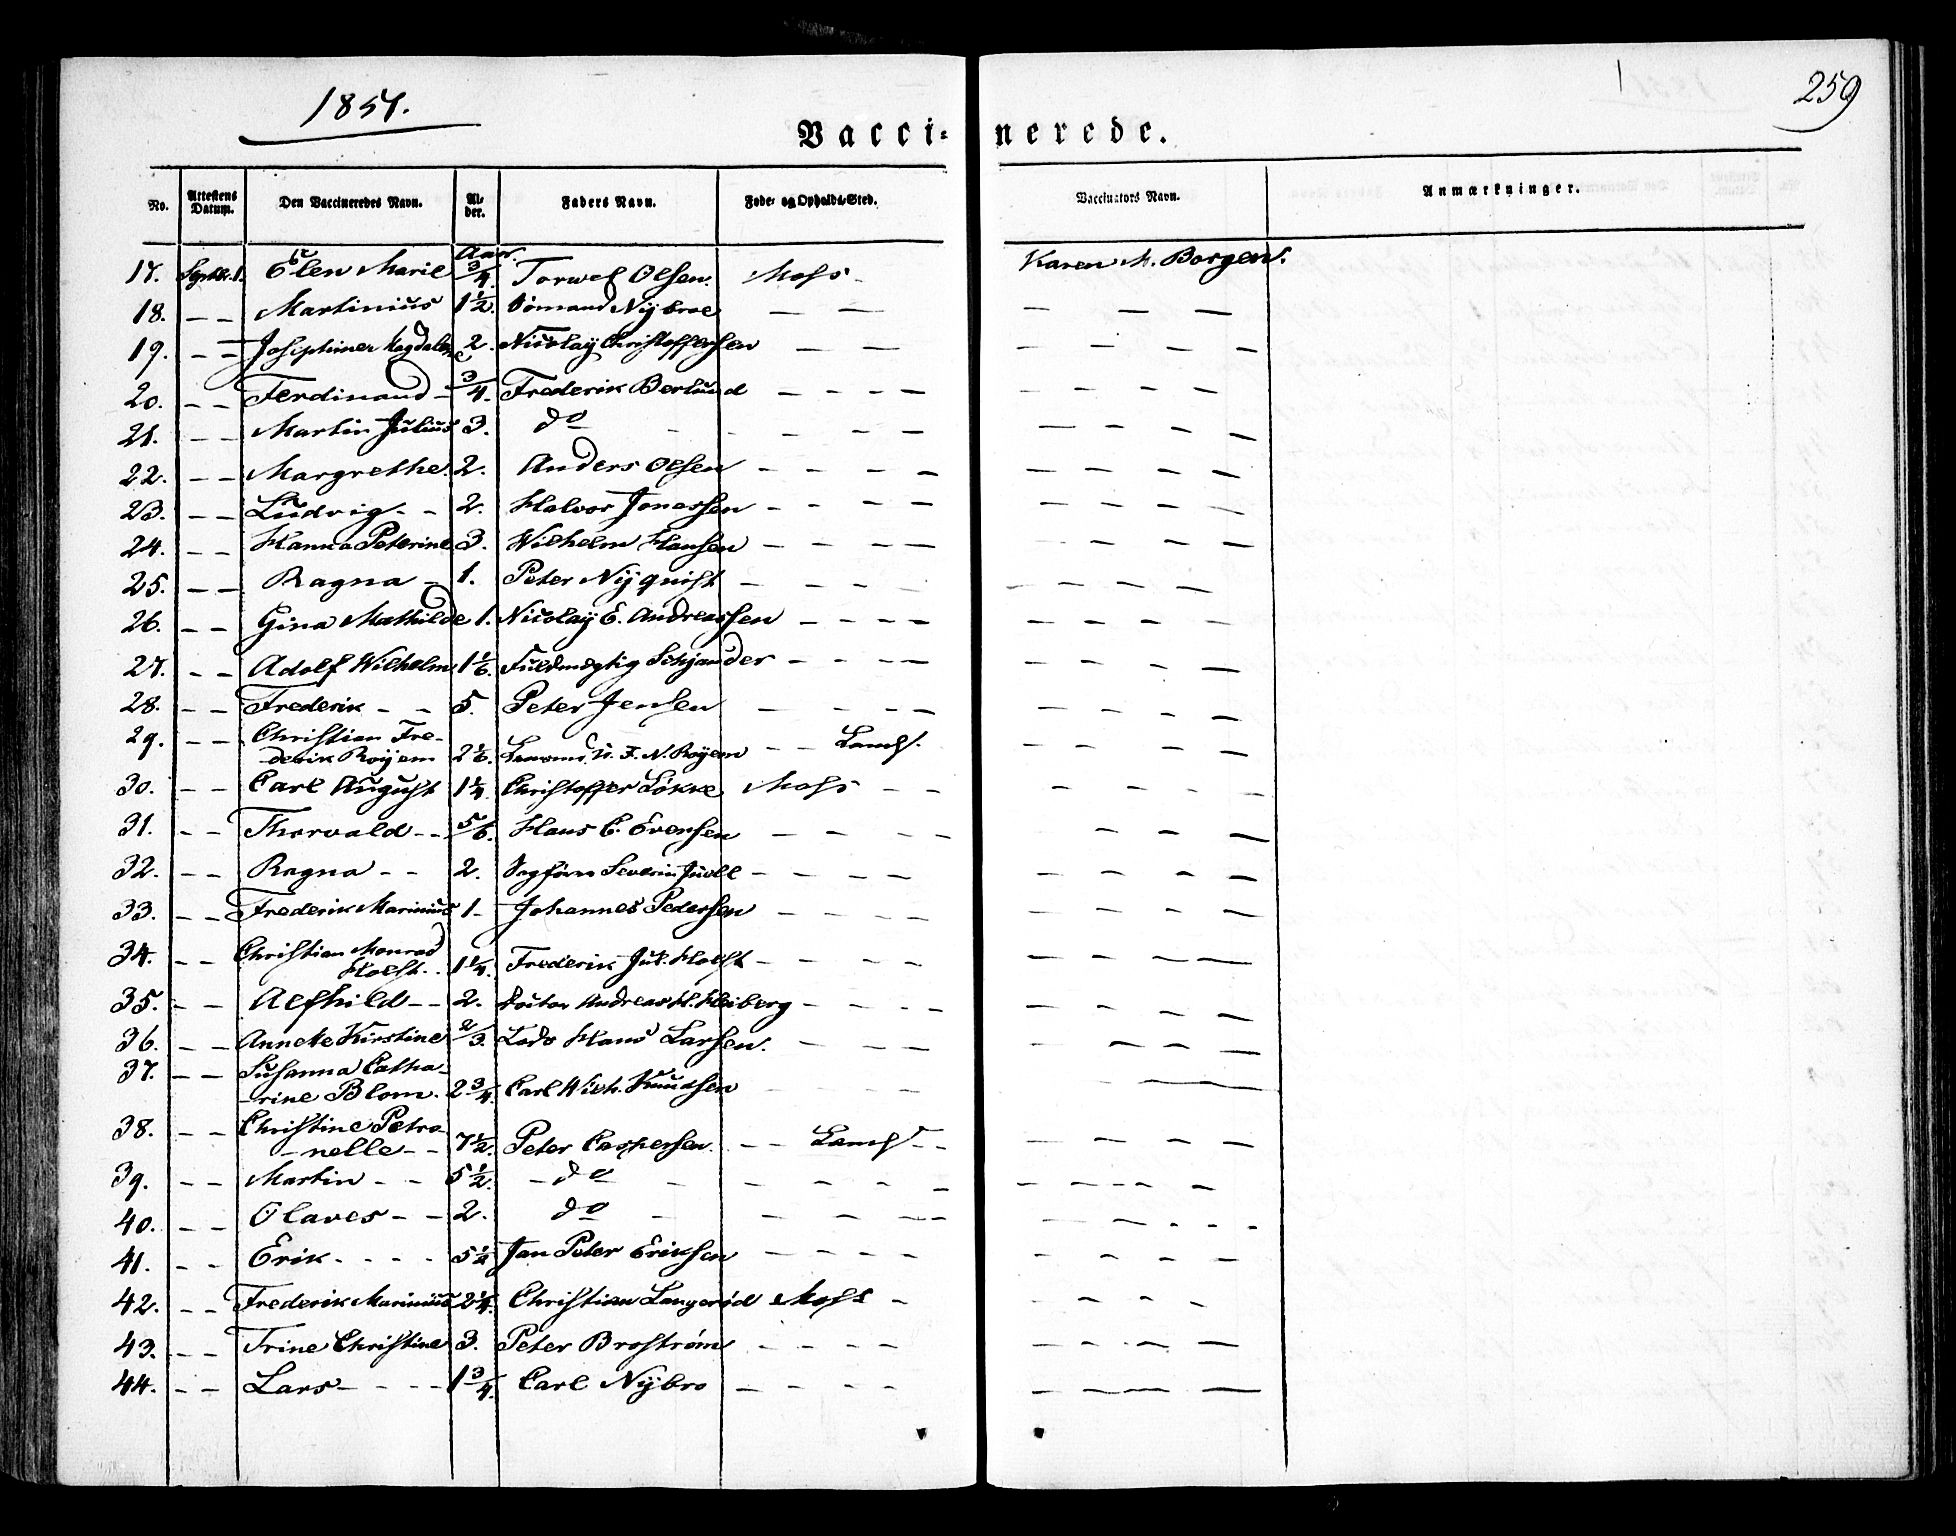 1851.
259
Vacci= nerede.
No. Attestens Datum. Den Vaccineredes Navn. Al- der. Faders Navn. Føde- og Opholds-Sted. Vaccinators Navn. Anmærkninger.
17. Septbr. 1. Elen Marie Aar. 3/4. Olsen. Moss - Karen M. Borgen.
18. - - Martinius 1 1/2. Nybroe - - - - -
19. - - 2. Nicolay Christoffersen - - - - - -
20. - - Ferdinand - 3/4. Frederik Berlund - - - - - - - -
21. - - Martin Julius 3. do - - - - - - - - - -
22. - - Margrethe. 2. Anders Olsen - - - - - - - -
23. - - Ludvig - - 2. Halvor Jonassen - - - - - - - -
24. - - Hanna Peterine 3. Wilhelm Hansen - - - - - - - -
25. - - Ragna - 1. Peter Nyquist - - - - - - - -
26. - - Gina Mathilde 1. Nicolay E. Andreassen - - - - - - - -
27. - - Adolf Wilhelm 1 1/6. Fuldmægtig Schjander - - - - - - - -
28. - - Frederik - - 5. Peter Jensen - - - - - - - -
29. - - Christian Fre-
derik Röyem 2 1/6. F. N. Röyem - - - - - -
30. - - Carl August 1 1/4. Christoffer Løkke Moss - - - - - -
31. - - Thorvald - - 5/6. Hans C. Evensen - - - - - - -
32. - - Ragna - - 2. Severin Juell - - - - - - - -
33. - - Frederik Marinius 1 - Johannes Pedersen - - - - - - - -
34. - - Christian Monrad
Holst. - 1 1/4. Frederik Jul. Holst - - - - - - - -
35. - - Alfhild - - 2. Doctor Andreas H. Heiberg - - - - - - - -
36. - - Annete Kirstine 2/3. Lods Hans Larsen. - - - - - - -
37. - - Susanna Catha-
-rine Blom. 2 3/4. Carl Wilh. Knudsen - - - - -
38. - - Christine Petro-
-nelle - - 7 1/2. Peter Caspersen. - - - - - - - -
39. - - Martin - - 5 1/2. - do - - - - - - - - - -
40. - - Olaves - - 2. do - - - - - - - - - -
41. - - Erik - - - - 5 1/2 Jan Peter Eriksen - - - - - - - -
42. - - Frederik Marinius 2 1/4. Christian Langerød Moss - - - - -
43. - - Trine Christine 3. Peter Brostrøm - - - - - - - -
44. - - Lars - - - - 1 3/4. Carl Nybro - - - - - - - -